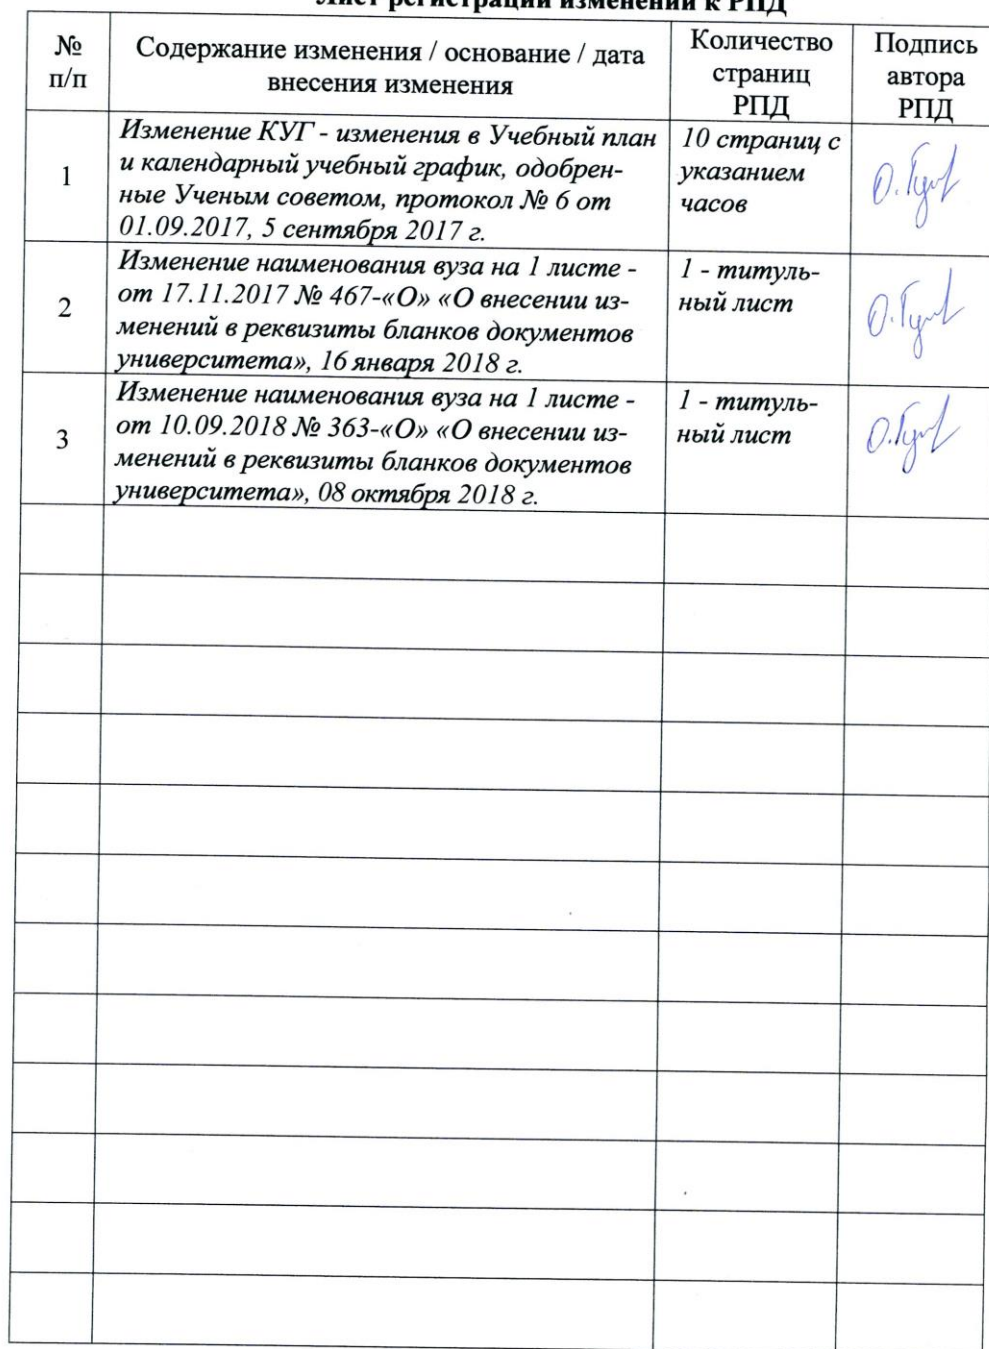 Лист регистрации изменений к РПД
№ п/п
Содержание изменения / основание / дата
внесения изменения
Количество
страниц
РПД
Подпись
автора
РПД
1
Изменение КУГ - изменения в Учебный план
и календарный учебный график, одобрен-
ные Ученым советом, протокол № 6 от
01.09.2017, 5 сентября 2017 г.
10 страниц с
указанием
часов
2
Изменение наименования вуза на 1 листе -
от 17.11.2017 № 467-«О» «О внесении из-
менений в реквизиты бланков документов
университета», 16 января 2018 г.
1 - титуль-
ный лист
3
Изменение наименования вуза на 1 листе -
от 10.09.2018 № 363-«О» «О внесении из-
менений в реквизиты бланков документов
университета», 08 октября 2018 г.
1 - титуль-
ный лист